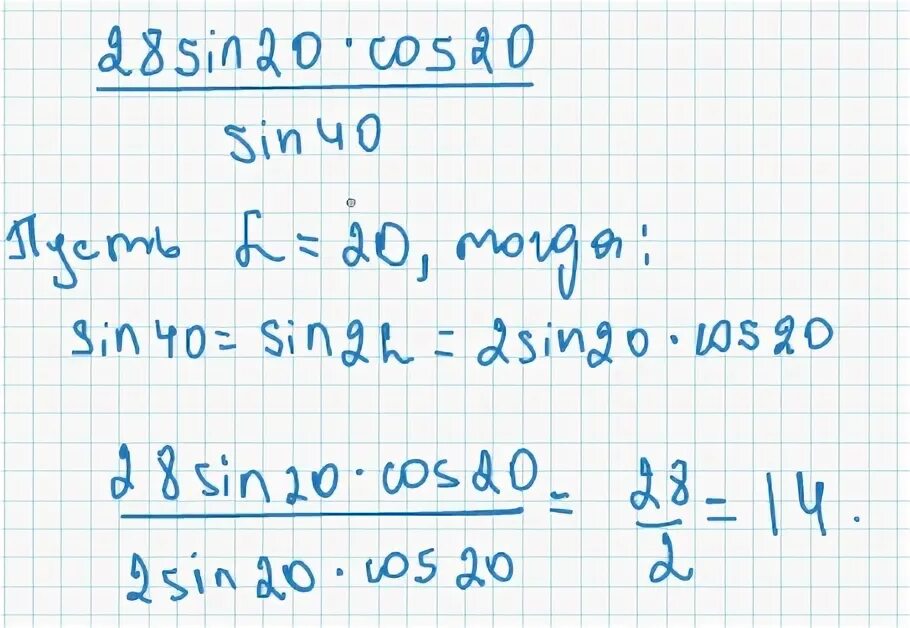 28sin20·cos20
sin40
Пусть α = 20, тогда:
sin40 = sin2α = 2sin20·cos20
28sin20·cos20 = 28 = 14.
2sin20·cos20 2